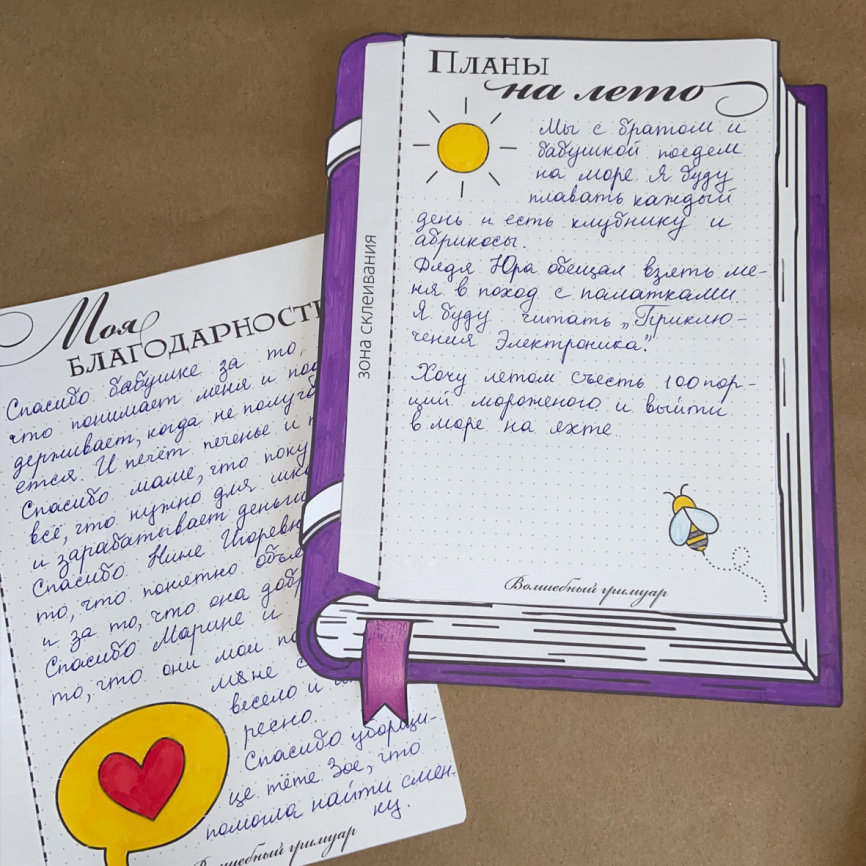 Планы
на лето
Мы с братом и
бабушкой поедем
на море. Я буду
плавать каждый
день и есть клубнику и
абрикосы.
Дядя Юра обещал взять ме-
ня в поход с палатками.
Я буду читать „Приклю-
чения Электроника".
Хочу летом съесть 100 пор-
ций мороженого и выйти
в море на яхте.
Волшебный гримуар
зона склеивания
Моя
БЛАГОДАРНОСТЬ
Спасибо бабушке за то,
что понимает меня и под
держивает, когда не получа
ется. И печёт печенье и
Спасибо маме, что поку
всё, что нужно для шко
и зарабатывает деньги
Спасибо Нине Игоревн
то, что понятно объя
и за то, что она добр
Спасибо Марине и
то, что они мои по
мне с
весело и
ресно.
Спасибо уборщи-
це тёте Зое, что
помогла найти смен-
ку.
Волшебный гримуар